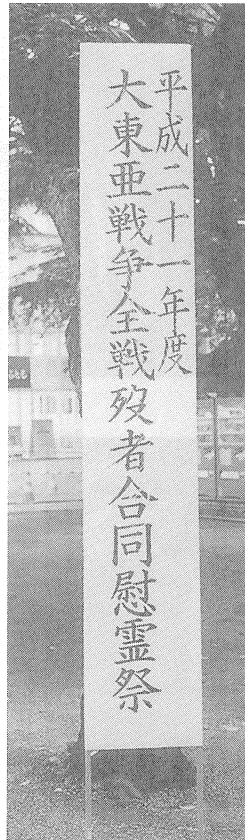 平成二十一年度
大東亜戦争全戦歿者合同慰霊祭